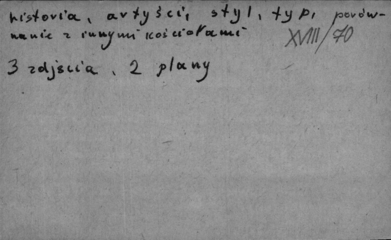 historia, artyści, styl, typ, porów-
nanie z innymi kościołami
XVIII/70
3 zdjęcia, 2 plany